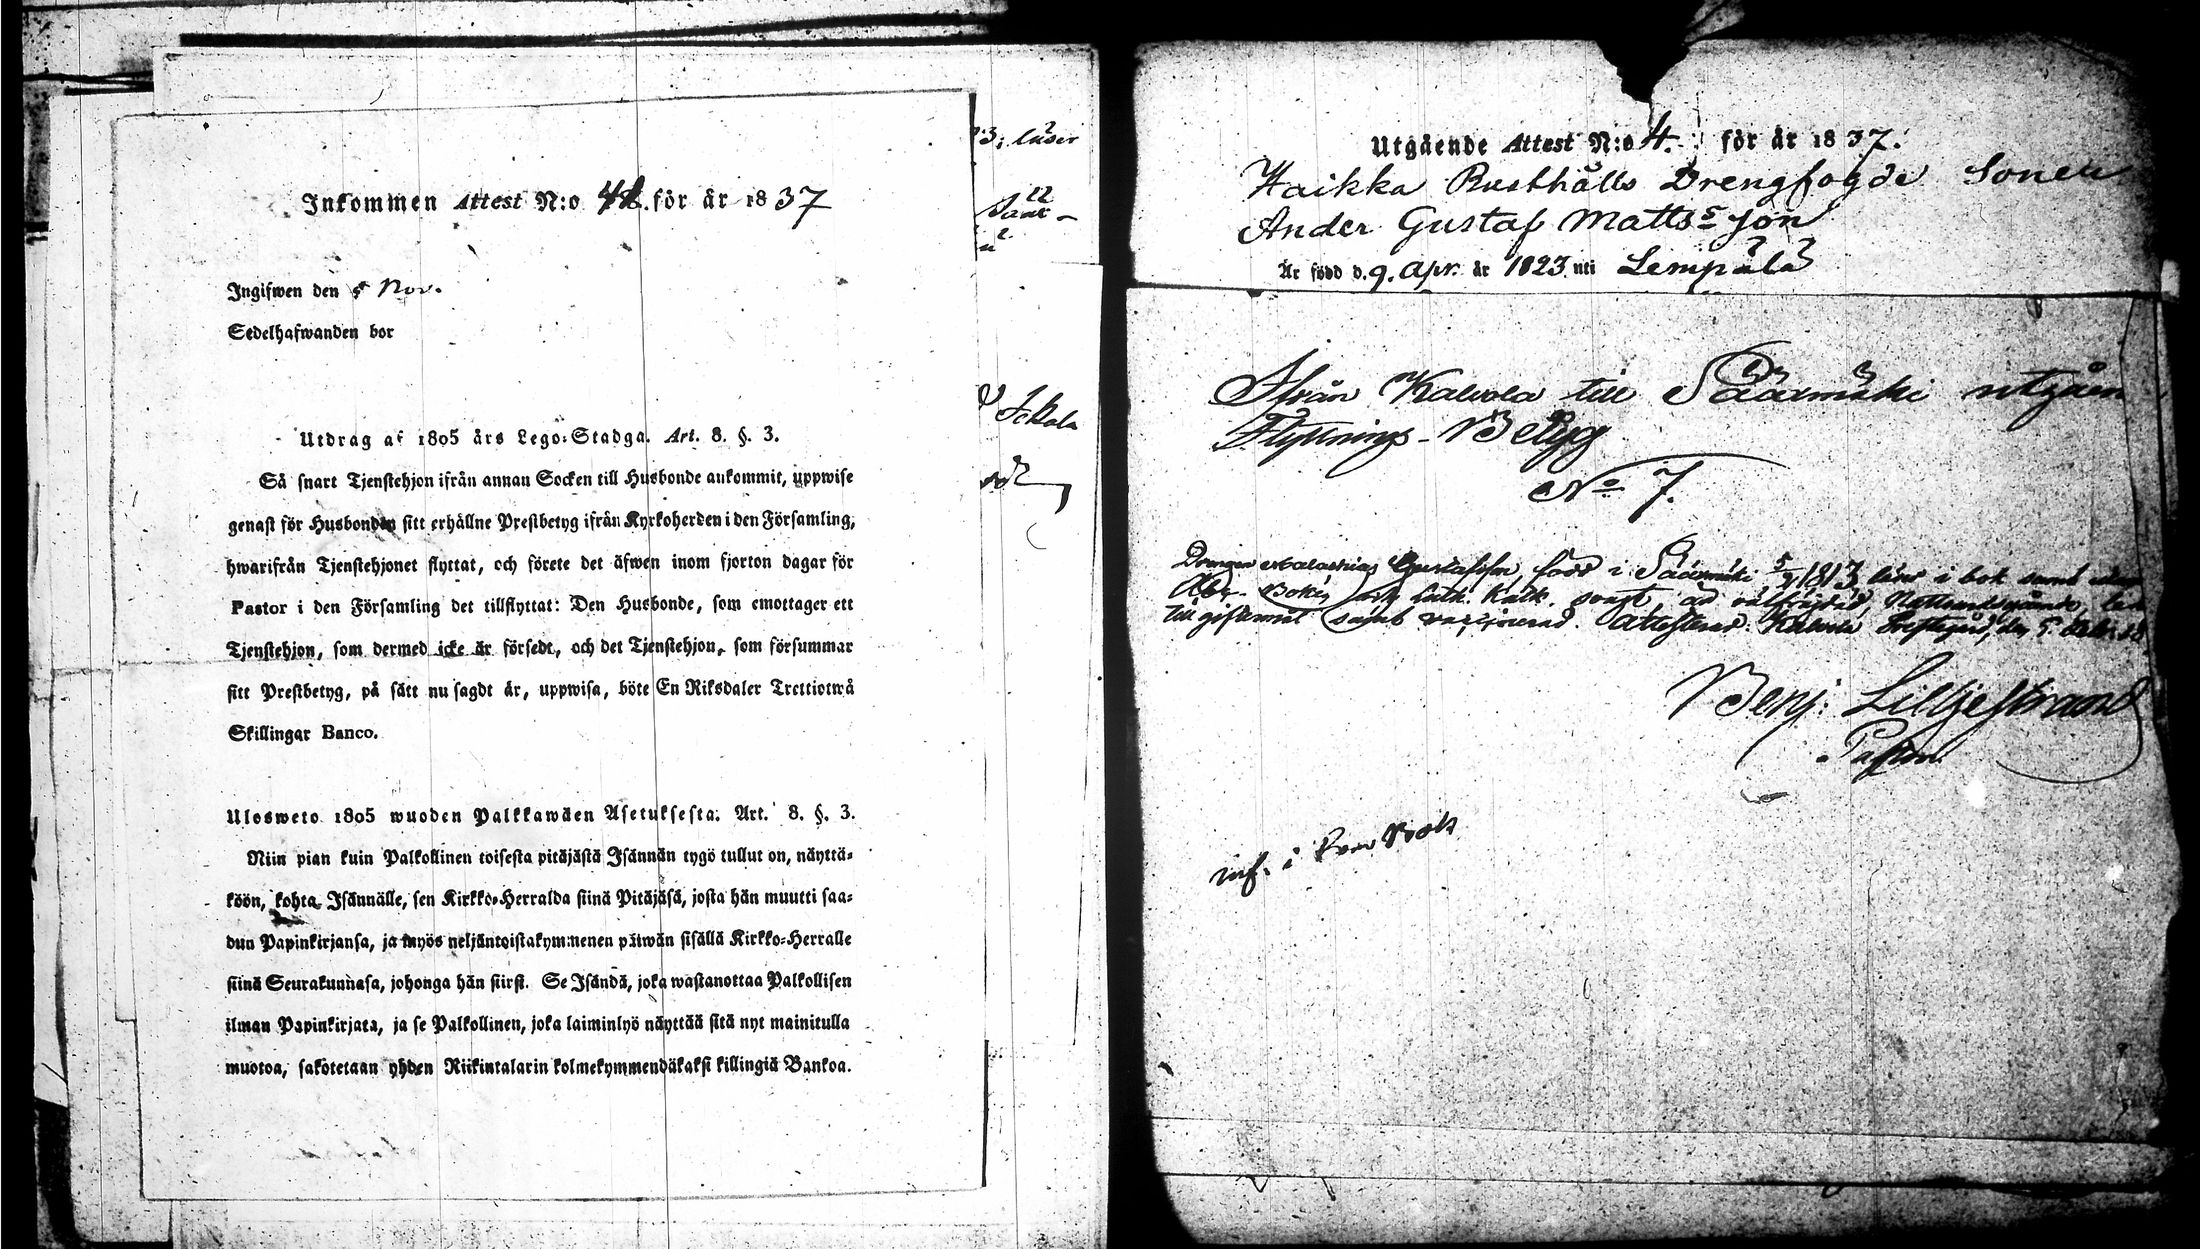 Inkommen Attest N:o för år 1837
Ingifwen den 5 Nov.
Sedelhafwanden bor
Utdrag af 1805 års Lego-Stadga. Art. 8. §. 3.
Så snart Tjenstehjon ifrån annan Socken till Husbonde ankommit, uppwise
genast för Husbonden sitt erhållne Prestbetyg ifrån Kyrkoherden i den Församling,
hwarifrån Tjenstehjonet flyttat, och förete det äfwen inom fjorton dagar för
Pastor i den Församling det tillflyttat: Den Husbonde, som emottager ett
Tjenstehjon, som dermed icke är försedt, och det Tjenstehjon, som försummar
sitt Prestbetyg, på sätt nu sagdt är, uppwisa, böte En Riksdaler Trettiotwå
Skillingar Banco.
Ulosweto 1805 wuoden Palkkawäen Asetuksesta. Art. 8. §. 3.
Niin pian kuin Palkollinen toisesta pitäjästä Isännän tygö tullut on, näyttä-
köön, kohta Isännälle, sen Kirkko-Herralda siinä Pitäjäsä, josta hän muutti saa-
dun Papinkirjansa, ja myös neljäntoistakymmenen päiwän sisällä Kirkko-Herralle
siinä Seurakunnasa, johonga hän siirsi. Se Isändä, joka wastanottaa Palkollisen
ilman Papinkirjata, ja se Palkollinen, joka laiminlyö näyttää sitä nyt mainitulla
muotoa, sakotetaan yhden Riikintalarin kolmekymmendäkaksi killingiä Bankoa.
3; läser
Utgående Attest N:o 4. för år 1837.
Haikka Rusthålls Drengfogde Sonen
Ander Gustaf Matts=son
Är född d. 9. Apr. år 1823 uti Lempälä
Ifrån Kalvola till Sääxmäki utgåen
Flyttnings-Betyg
No 7.
Drengen Malachias Gustafsson född i Sääxmäki 5/9 1813 läser i bok samt
ABc-Boken Luth. Kat. svagt, är välfrejdad, Nattvardsgående, led
till giftermål samt vaccinerad. Attesterad Kalvola Prestgård, den 5.
Benj: Lilljestrand
Pastor.
inf. i Bok